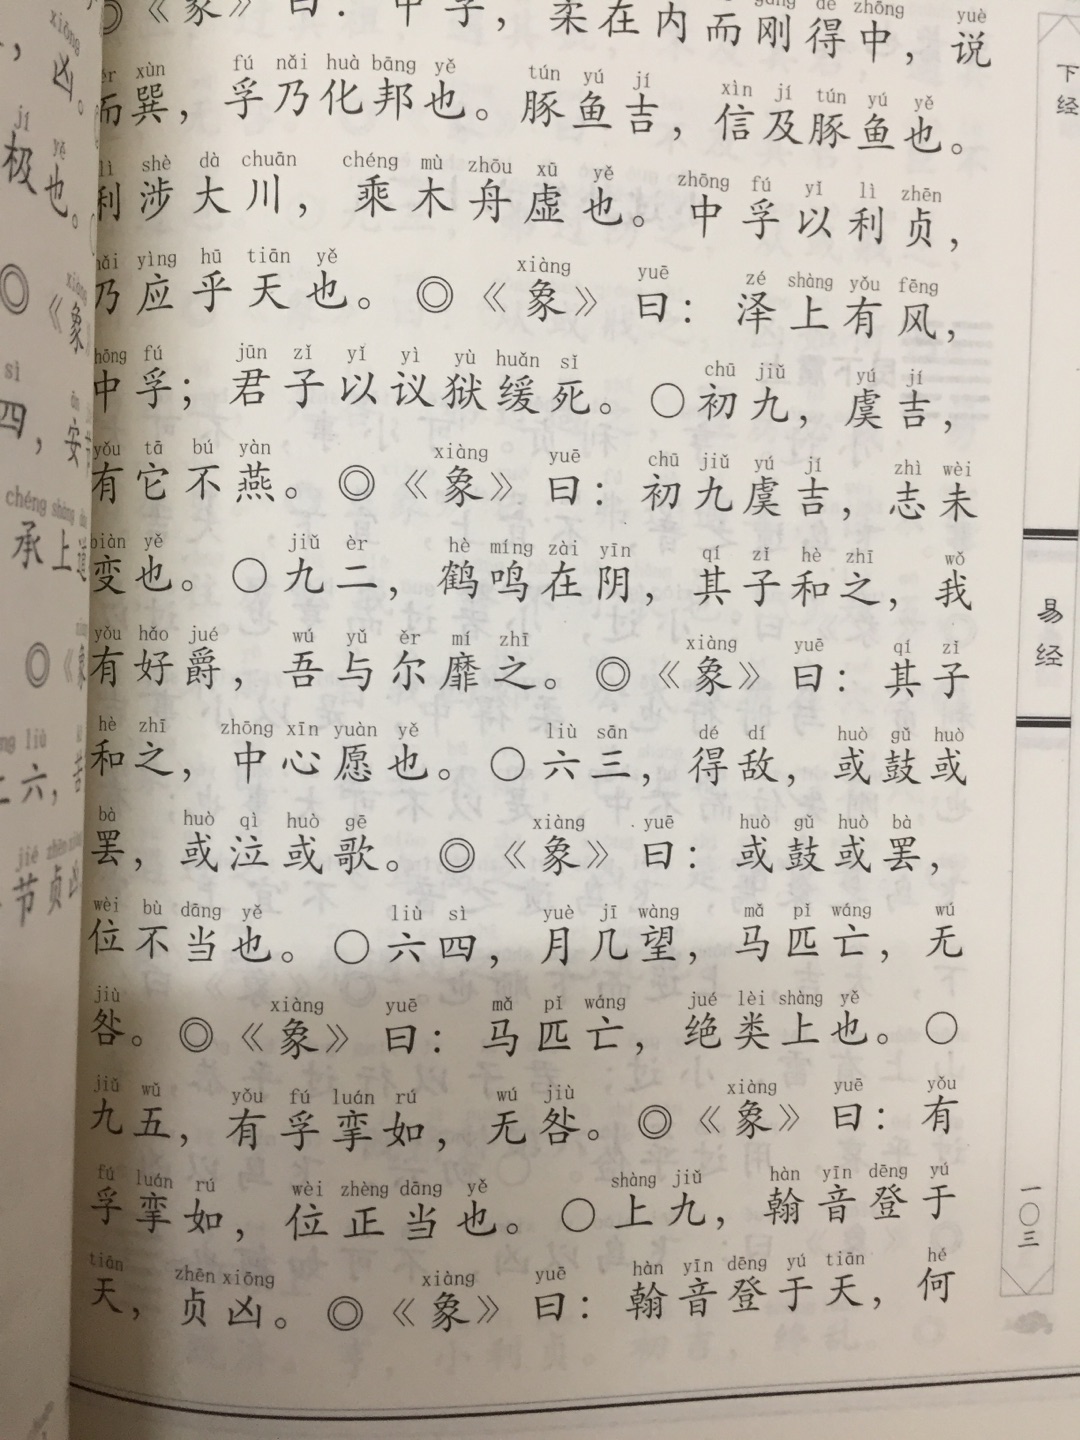 ◎《彖》曰：中孚，柔在内而刚得中，说
而巽，孚乃化邦也。豚鱼吉，信及豚鱼也。
利涉大川，乘木舟虚也。中孚以利贞，
乃应乎天也。◎《象》曰：泽上有风，
中孚；君子以议狱缓死。○初九，虞吉，
有它不燕。◎《象》曰：初九虞吉，志未
变也。○九二，鹤鸣在阴，其子和之，我
有好爵，吾与尔靡之。◎《象》曰：其子
和之，中心愿也。○六三，得敌，或鼓或
罢，或泣或歌。◎《象》曰：或鼓或罢，
位不当也。○六四，月几望，马匹亡，无
咎。◎《象》曰：马匹亡，绝类上也。○
九五，有孚挛如，无咎。◎《象》曰：有
孚挛如，位正当也。○上九，翰音登于
天，贞凶。◎《象》曰：翰音登于天，何
下经
易经
一〇三
凶。
极也。
◎《象
四，安
承上道
◎《象
上六，苦
节贞凶